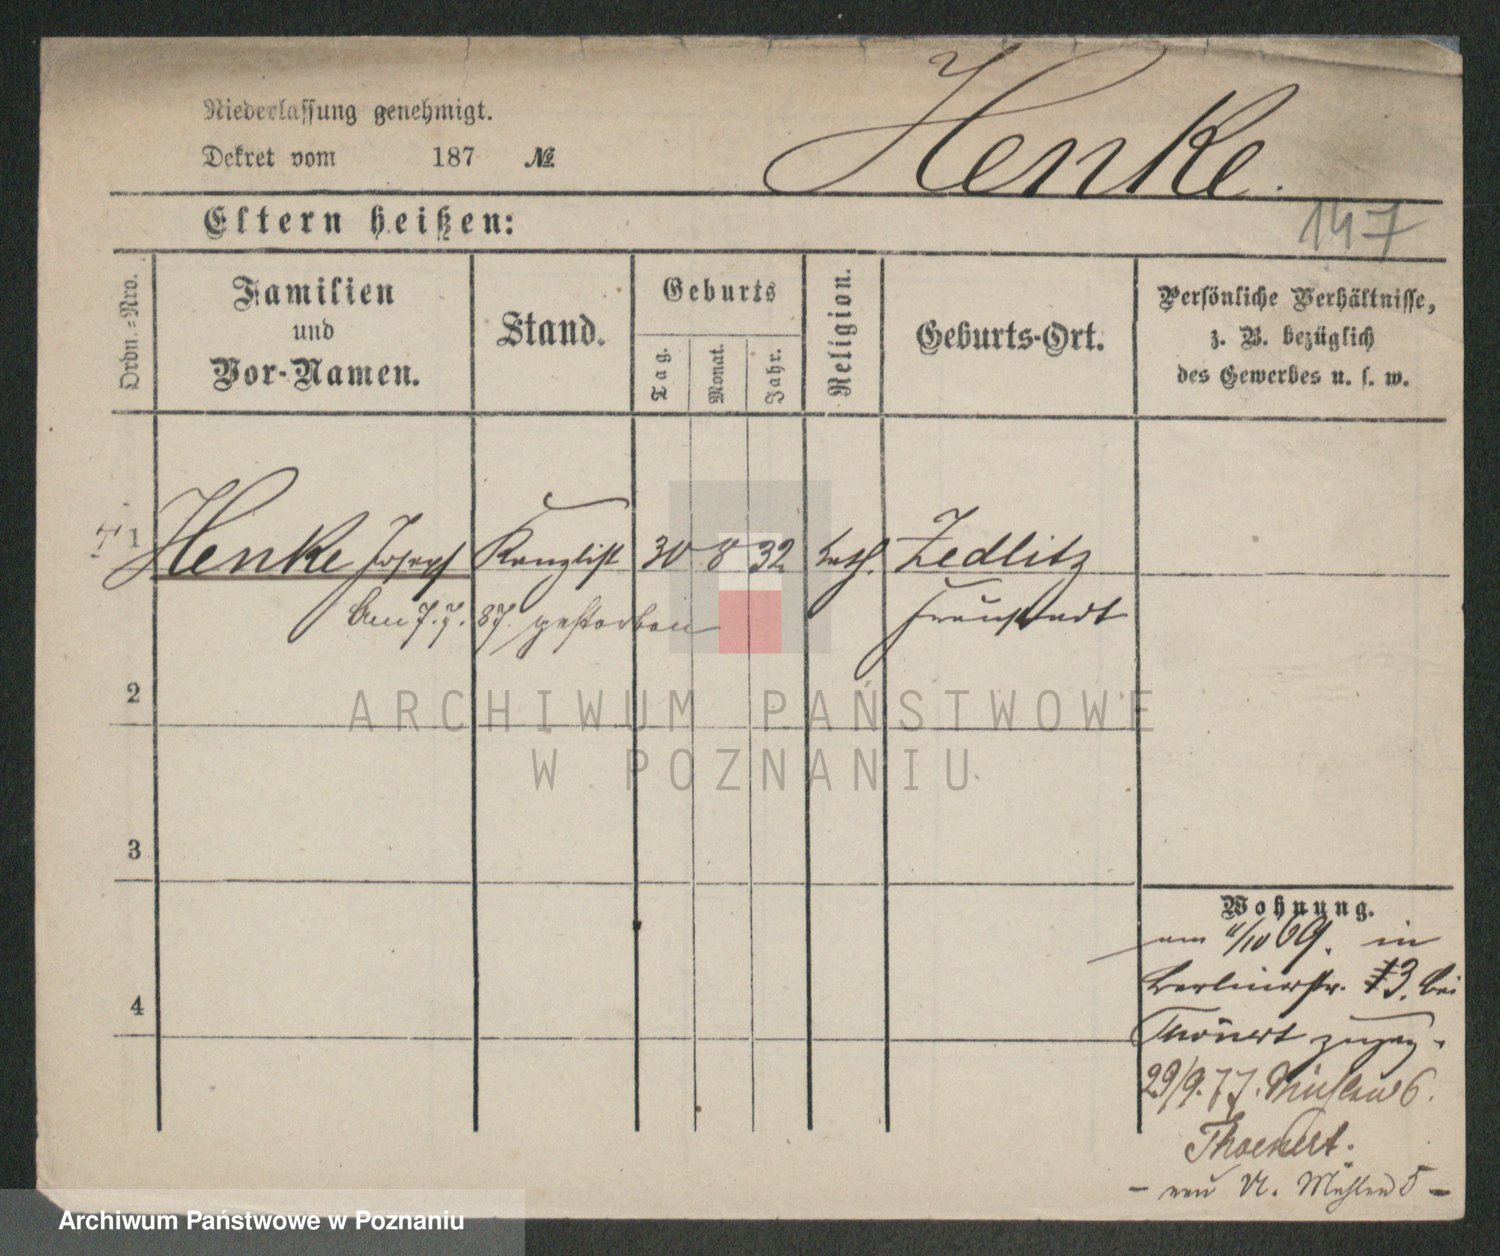 Niederlassung genehmigt.
Dekret vom 187 №
Henke.
147
Eltern heißen:
Ordn.=Nro.
Familien
und
Vor-Namen.
Stand.
Geburts
Tag.
Monat.
Jahr.
Religion.
Geburts-Ort.
Persönliche Verhältnisse,
z. B. bezüglich
des Gewerbes u. s. w.
† 1 Henke Joseph Kanzlist 30 8 32 kath. Zedlitz
am 7. 7. 87. gestorben Fraustadt
2
3
4
Wohnung.
am 11/10 69. in
Berlinerstr. 13. bei
Thönert zugez.
29/9. 77. Mühlen 6.
Thoenert.
- neu N. Mühlen 5 -
ARCHIWUM PAŃSTWOWE
W POZNANIU
Archiwum Państwowe w Poznaniu